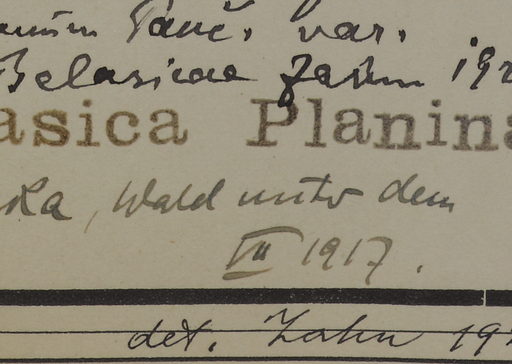 Panč. var.
Belasicae Zahn 192
asica Planina
ka, Wald unter dem
VII 1917.
det. Zahn 192